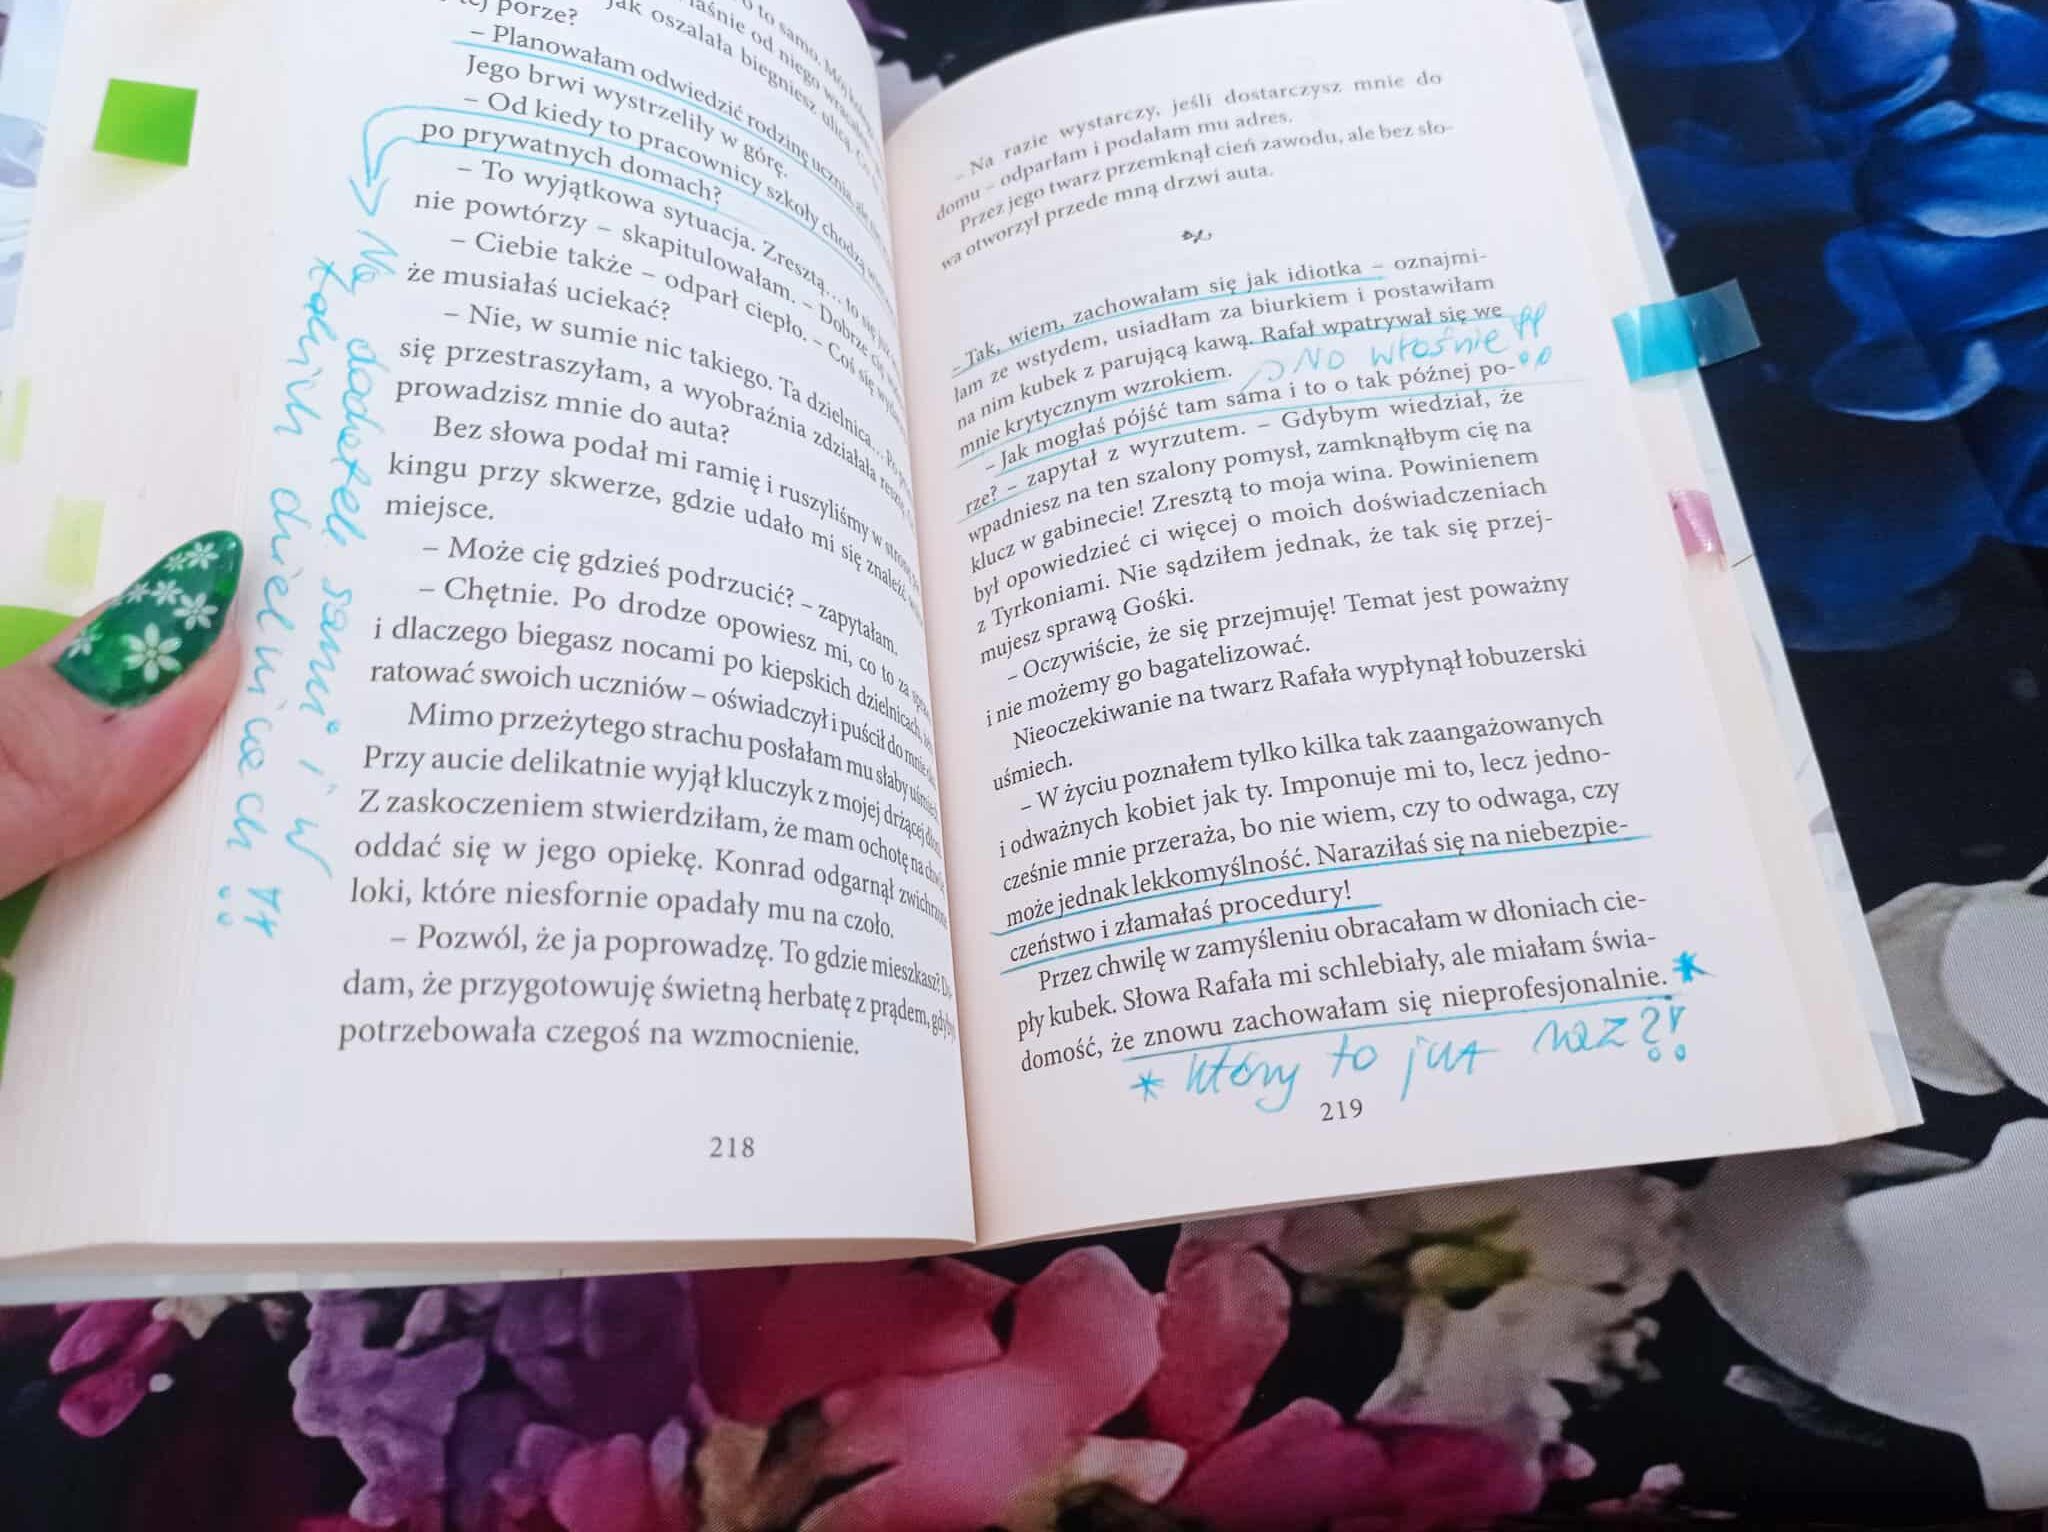 to samo. Mój
właśnie od niego wracałam.
jak oszalała biegniesz ulicą.
tej porze?
– Planowałam odwiedzić rodzinę ucznia, ale
Jego brwi wystrzeliły w górę.
– Od kiedy to pracownicy szkoły chodzą
po prywatnych domach?
– To wyjątkowa sytuacja. Zresztą... to się już
nie powtórzy – skapitulowałam. – Dobrze cię
– Ciebie także – odparł ciepło. – Coś się
że musiałaś uciekać?
– Nie, w sumie nic takiego. Ta dzielnica...
się przestraszyłam, a wyobraźnia zdziałała resztę.
prowadzisz mnie do auta?
Bez słowa podał mi ramię i ruszyliśmy w stronę
kingu przy skwerze, gdzie udało mi się znaleźć
miejsce.
– Może cię gdzieś podrzucić? – zapytałam.
– Chętnie. Po drodze opowiesz mi, co to za
i dlaczego biegasz nocami po kiepskich dzielnicach,
ratować swoich uczniów – oświadczył i puścił do mnie
Mimo przeżytego strachu posłałam mu słaby uśmiech.
Przy aucie delikatnie wyjął kluczyk z mojej drżącej dłoni.
Z zaskoczeniem stwierdziłam, że mam ochotę na chwilę
oddać się w jego opiekę. Konrad odgarnął zwichrzone
loki, które niesfornie opadały mu na czoło.
– Pozwól, że ja poprowadzę. To gdzie mieszkasz?
dam, że przygotowuję świetną herbatę z prądem, gdybyś
potrzebowała czegoś na wzmocnienie.
218
No dodatek sami i w
takich dzielnicach !!
– Na razie wystarczy, jeśli dostarczysz mnie do
domu – odparłam i podałam mu adres.
Przez jego twarz przemknął cień zawodu, ale bez sło-
wa otworzył przede mną drzwi auta.
– Tak, wiem, zachowałam się jak idiotka – oznajmi-
łam ze wstydem, usiadłam za biurkiem i postawiłam
na nim kubek z parującą kawą. Rafał wpatrywał się we
mnie krytycznym wzrokiem.
No właśnie !!
– Jak mogłaś pójść tam sama i to o tak późnej po-
rze? – zapytał z wyrzutem. – Gdybym wiedział, że
wpadniesz na ten szalony pomysł, zamknąłbym cię na
klucz w gabinecie! Zresztą to moja wina. Powinienem
był opowiedzieć ci więcej o moich doświadczeniach
z Tyrkoniami. Nie sądziłem jednak, że tak się przej-
mujesz sprawą Gośki.
– Oczywiście, że się przejmuję! Temat jest poważny
i nie możemy go bagatelizować.
Nieoczekiwanie na twarz Rafała wypłynął łobuzerski
uśmiech.
– W życiu poznałem tylko kilka tak zaangażowanych
i odważnych kobiet jak ty. Imponuje mi to, lecz jedno-
cześnie mnie przeraża, bo nie wiem, czy to odwaga, czy
może jednak lekkomyślność. Naraziłaś się na niebezpie-
czeństwo i złamałaś procedury!
Przez chwilę w zamyśleniu obracałam w dłoniach cie-
pły kubek. Słowa Rafała mi schlebiały, ale miałam świa-
domość, że znowu zachowałam się nieprofesjonalnie. *
* który to już raz?!
219